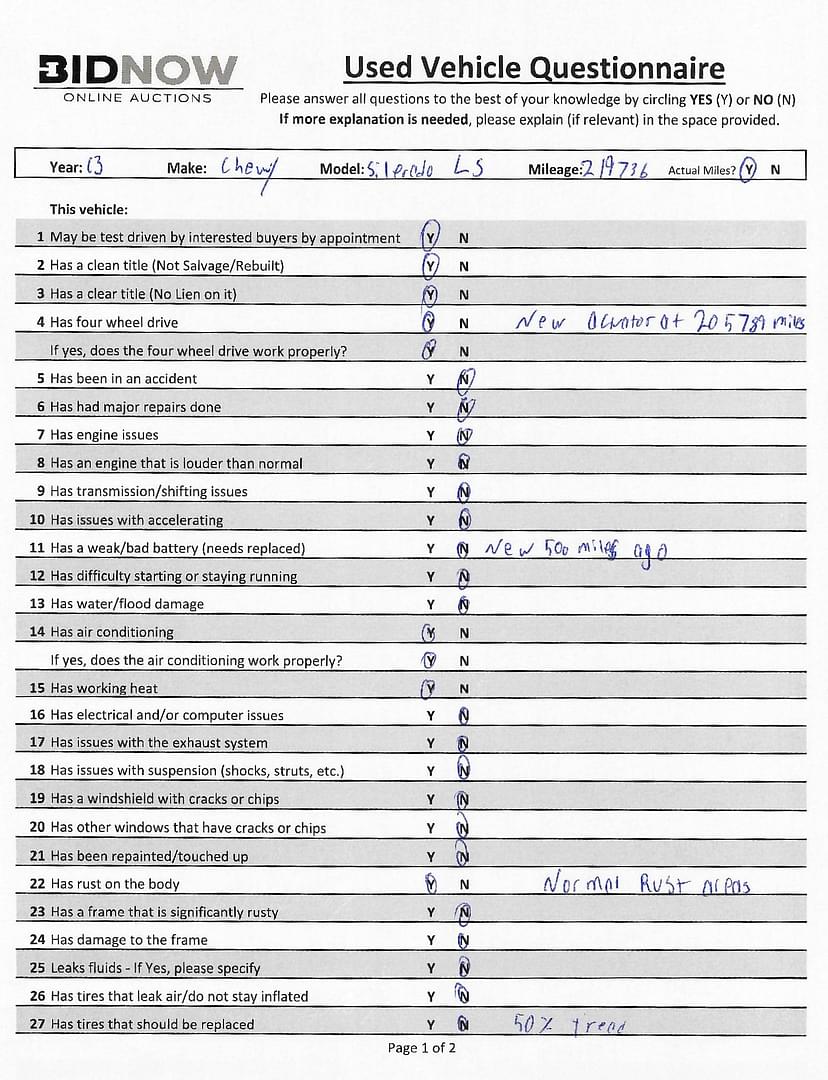 BIDNOW
ONLINE AUCTIONS
Used Vehicle Questionnaire
Please answer all questions to the best of your knowledge by circling YES (Y) or NO (N)
If more explanation is needed, please explain (if relevant) in the space provided.
Year: 13 Make: Chevy Model: Silerado LS Mileage: 219736 Actual Miles? Y N
This vehicle:
1 May be test driven by interested buyers by appointment Y N
2 Has a clean title (Not Salvage/Rebuilt) Y N
3 Has a clear title (No Lien on it) Y N
4 Has four wheel drive Y N New at 205789 miles
If yes, does the four wheel drive work properly? Y N
5 Has been in an accident Y N
6 Has had major repairs done Y N
7 Has engine issues Y N
8 Has an engine that is louder than normal Y N
9 Has transmission/shifting issues Y N
10 Has issues with accelerating Y N
11 Has a weak/bad battery (needs replaced) Y N New 500 miles ago
12 Has difficulty starting or staying running Y N
13 Has water/flood damage Y N
14 Has air conditioning Y N
If yes, does the air conditioning work properly? Y N
15 Has working heat Y N
16 Has electrical and/or computer issues Y N
17 Has issues with the exhaust system Y N
18 Has issues with suspension (shocks, struts, etc.) Y N
19 Has a windshield with cracks or chips Y N
20 Has other windows that have cracks or chips Y N
21 Has been repainted/touched up Y N
22 Has rust on the body Y N Normal Rust areas
23 Has a frame that is significantly rusty Y N
24 Has damage to the frame Y N
25 Leaks fluids - If Yes, please specify Y N
26 Has tires that leak air/do not stay inflated Y N
27 Has tires that should be replaced Y N 50% tread
Page 1 of 2